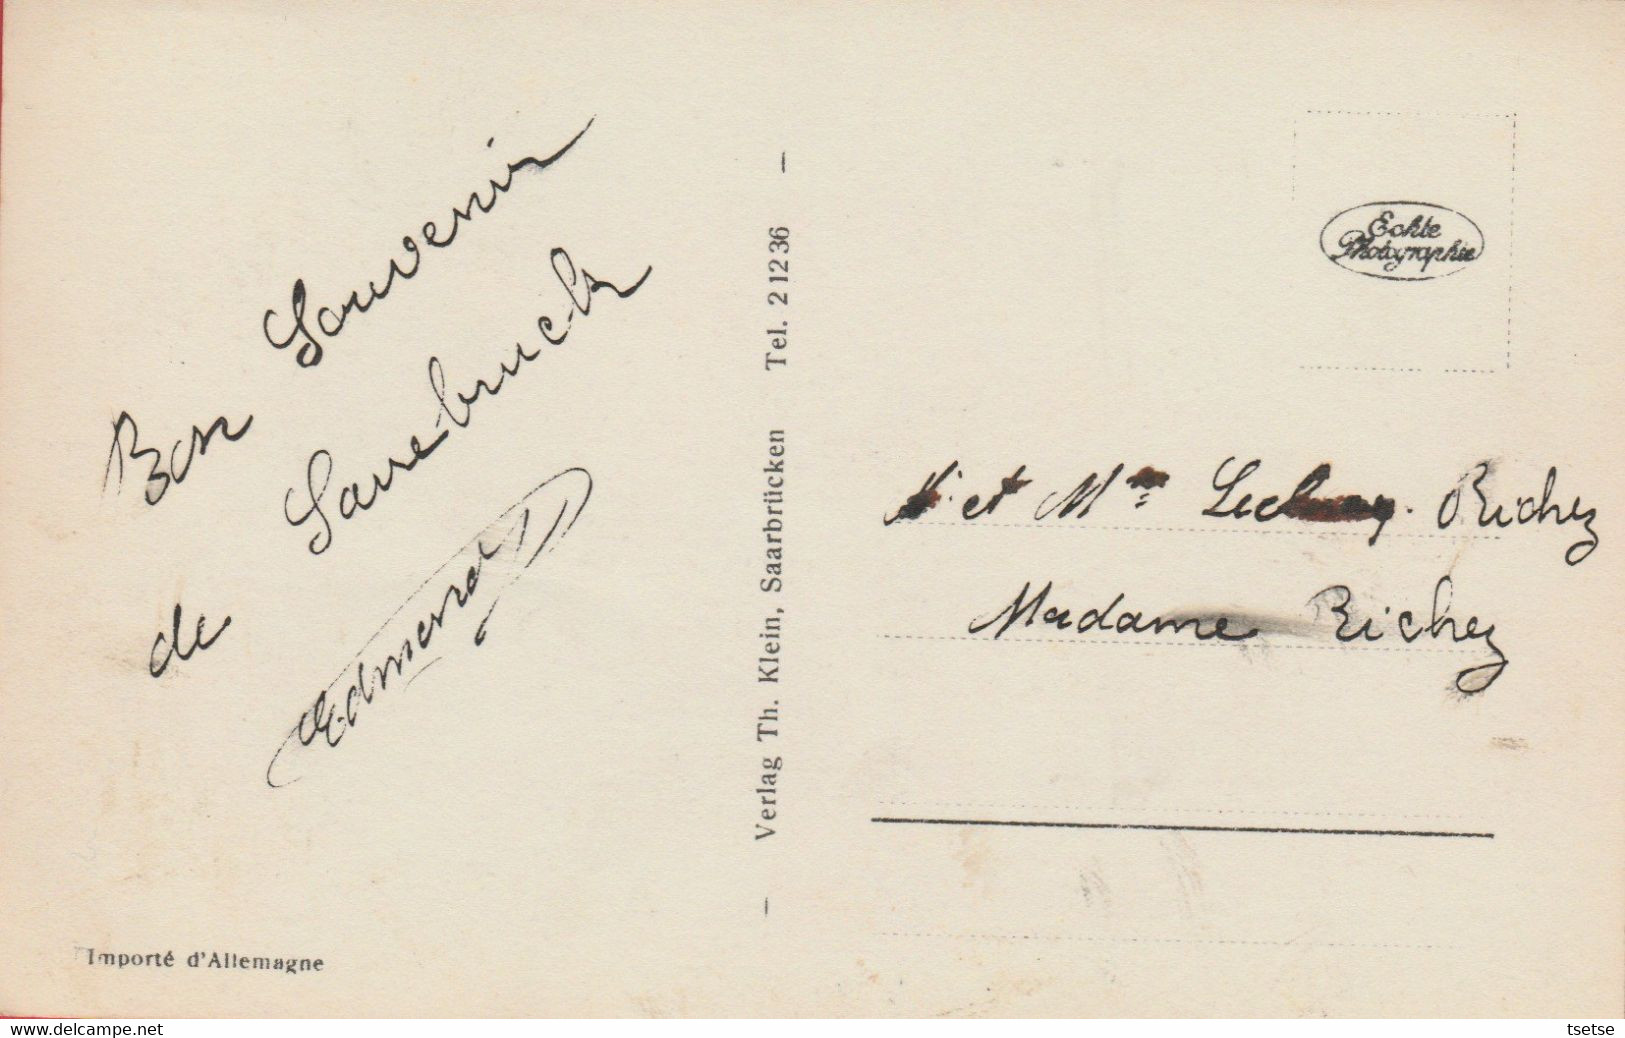 Bon Souvenir
de Sarrebruck
Edmond
Importé d'Allemagne
— Verlag Th. Klein, Saarbrücken Tel. 2 12 36 —
Echte
Photographie
et Mme Richez
Madame Richez
www.delcampe.net
tsetse